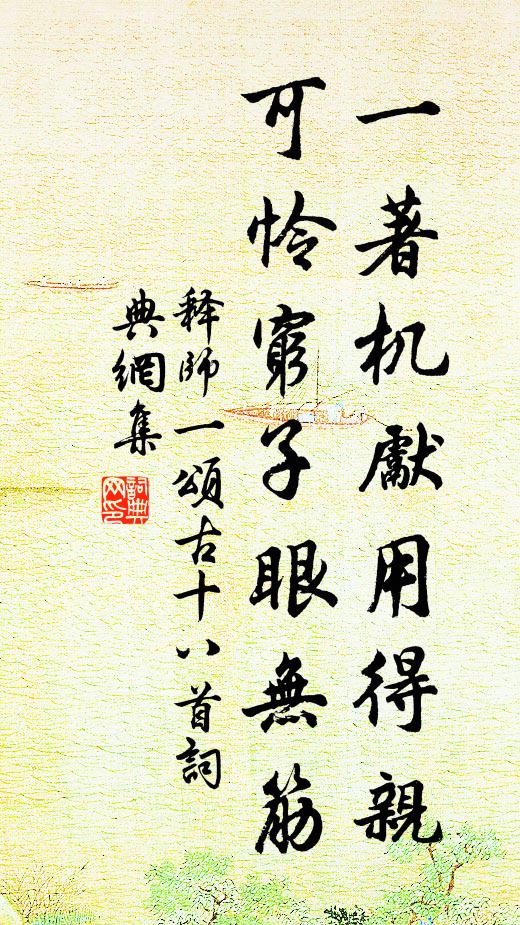 一著机獻用得親
可怜窮子眼無筋
释師一頌古十八首詞
典網集
詞典
网印